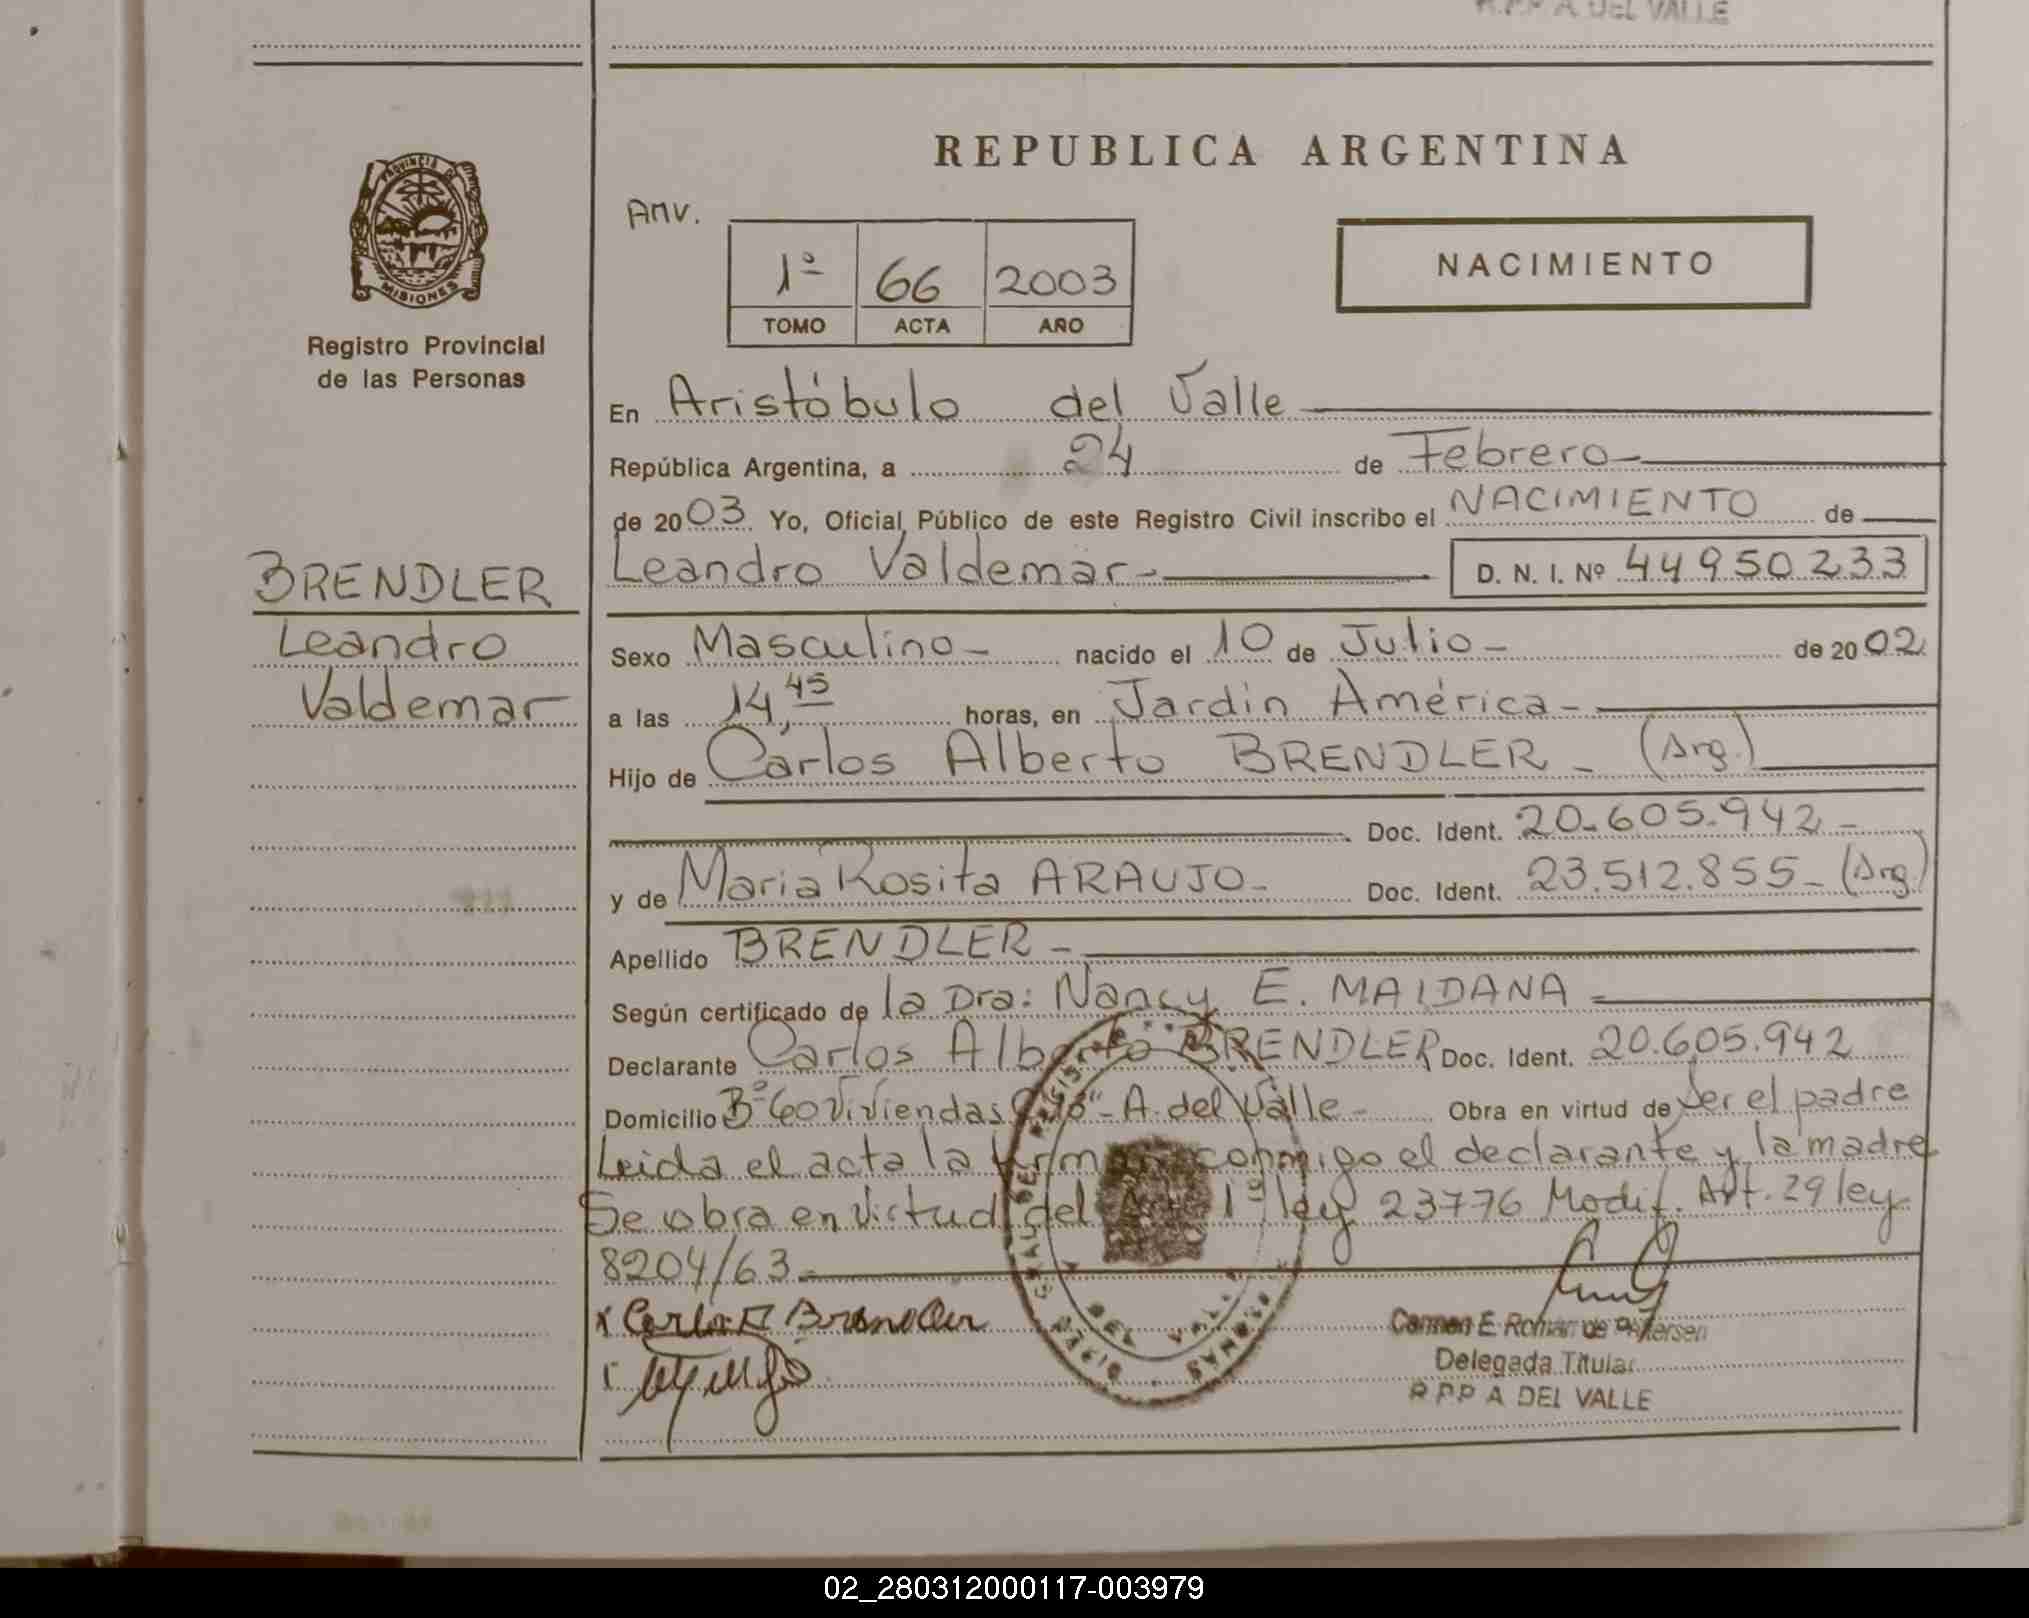 R.P.P A DEL VALLE
REPUBLICA ARGENTINA
PROVINCIA DE
MISIONES
Registro Provincial
de las Personas
Anv.
1º 66 2003
TOMO ACTA AÑO
NACIMIENTO
En Aristóbulo del Valle
República Argentina, a 24 de Febrero
de 2003 Yo, Oficial Público de este Registro Civil inscribo el NACIMIENTO de
BRENDLER
Leandro
Valdemar
Leandro Valdemar D. N. I. Nº 44950233
Sexo Masculino nacido el 10 de Julio de 2002
a las 14,45 horas, en Jardin América
Hijo de Carlos Alberto BRENDLER (Arg.)
Doc. Ident. 20.605.942
y de Maria Rosita ARAUJO Doc. Ident. 23.512.855 (Arg)
Apellido BRENDLER
Según certificado de la Dra: Nancy E. MALDANA
Declarante Carlos Alberto BRENDLER Doc. Ident. 20.605.942
Domicilio Bº 60 Viviendas A. del Valle Obra en virtud de Ser el padre
Leida el acta la conmigo el declarante y la madre
Se obra en virtud del Art 1º ley 23776 Modif. Art. 29 ley
8204/63
Carlos A Brendler
Carmen E. Roman de Pettersen
Delegada Titular
R.P.P A DEL VALLE
02_280312000117-003979